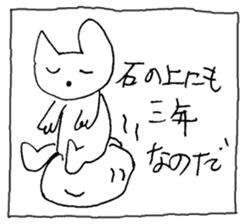 石の上にも
三年
なのだ